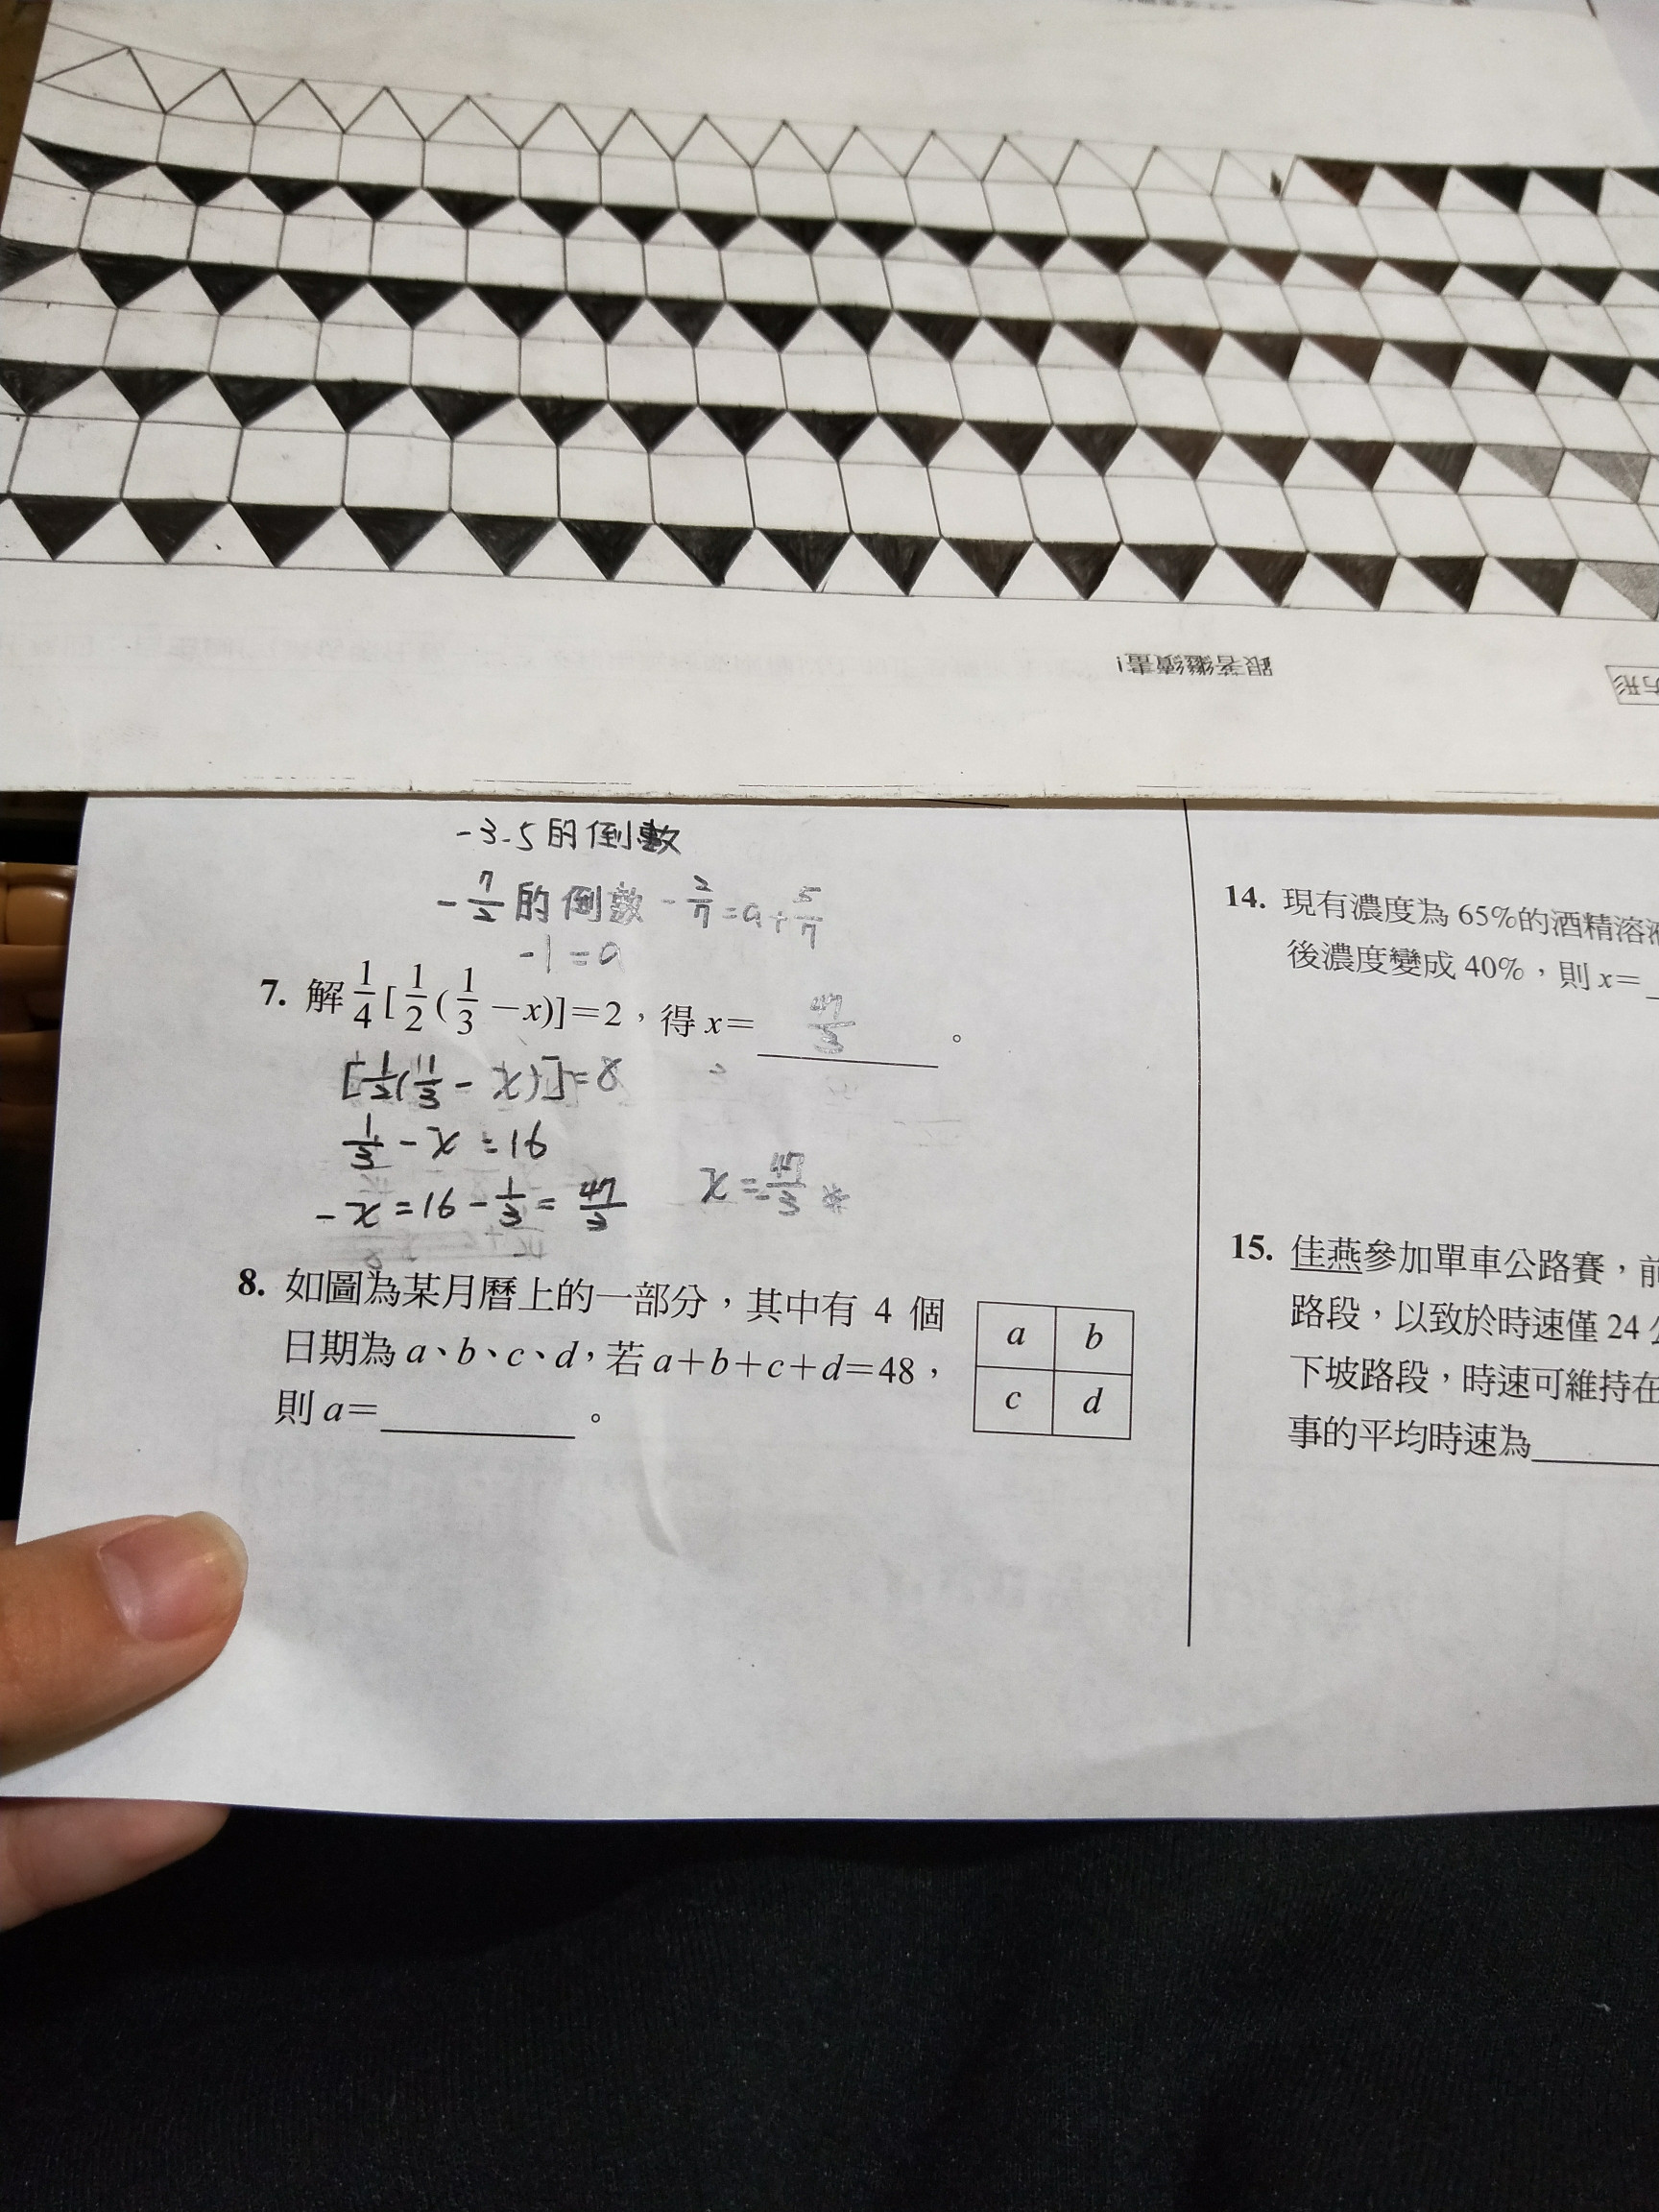 跟著繼續畫!
方形
-3.5的倒數
-7/2的倒數 -2/7=a+5/7
-1=a
7. 解 1/4[1/2(1/3-x)]=2，得x= 47/3 。
[1/2(1/3-x)]=8
1/3-x=16
-x=16-1/3=47/3 x=-47/3 *
8. 如圖為某月曆上的一部分，其中有 4 個
日期為a、b、c、d，若a+b+c+d=48，
則a=________。
a b
c d
14. 現有濃度為65%的酒精溶液
後濃度變成40%，則x=
15. 佳燕參加單車公路賽，前
路段，以致於時速僅24公
下坡路段，時速可維持在
事的平均時速為